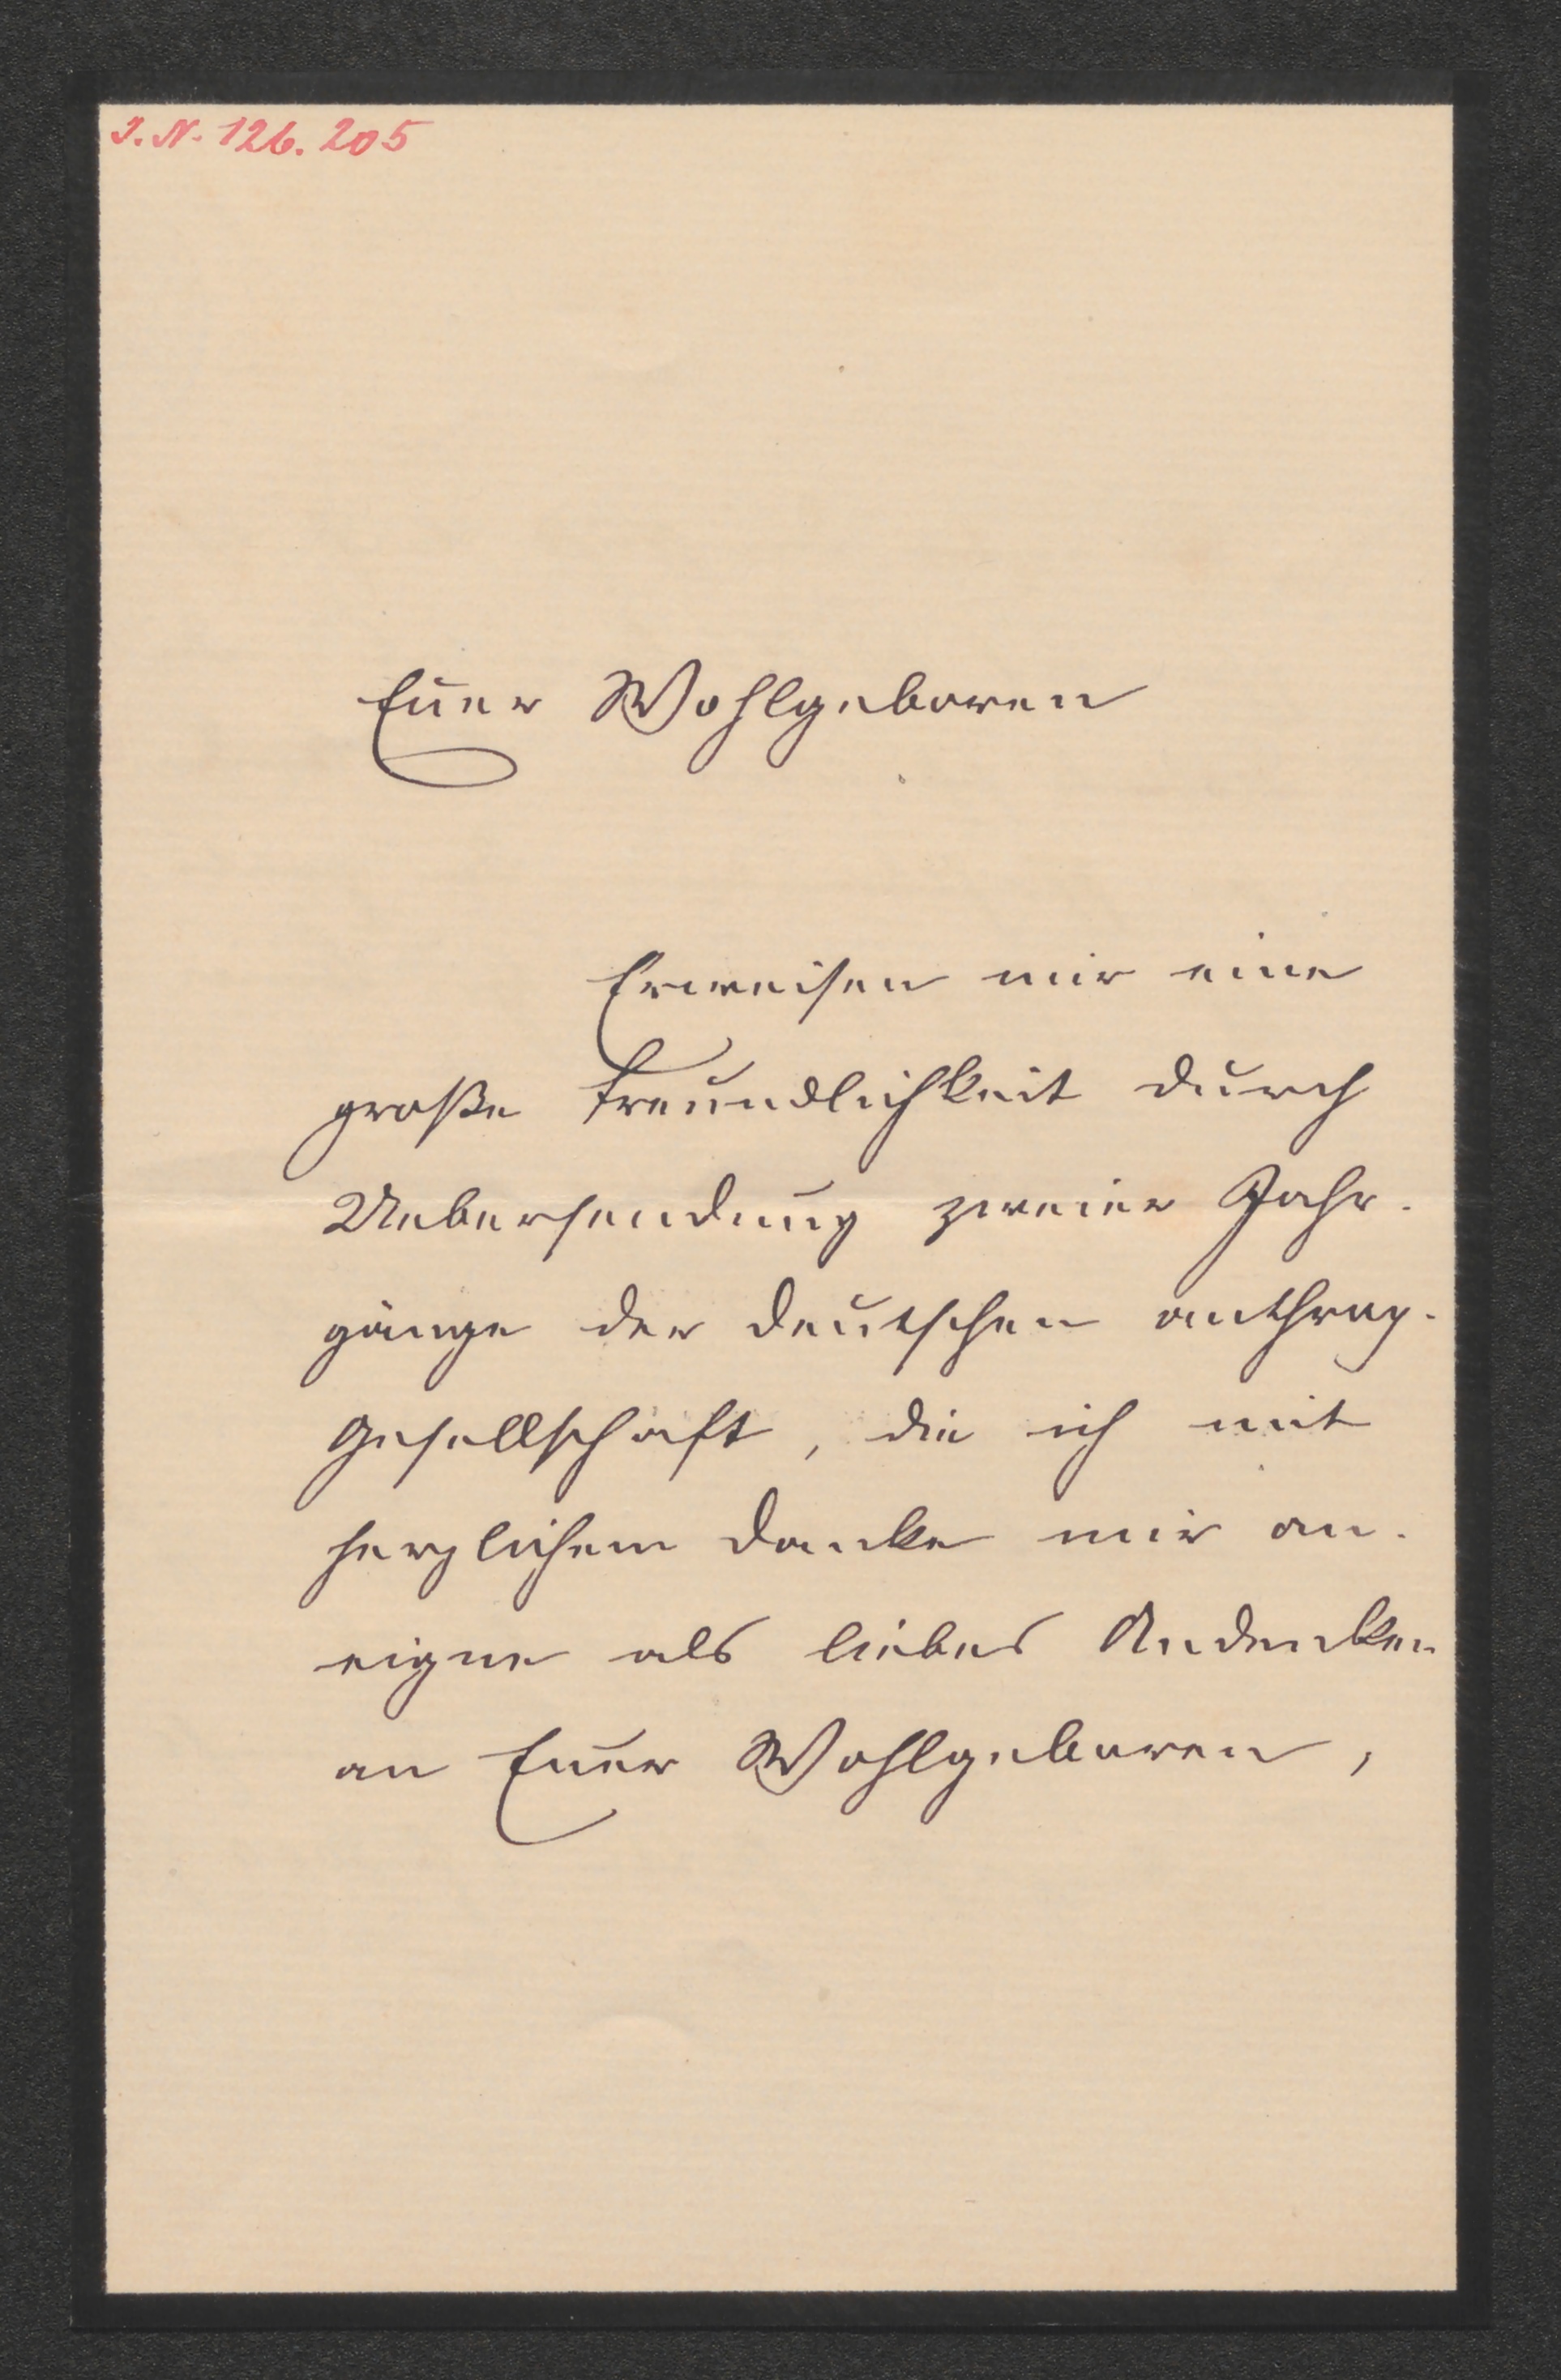 I. N. 126.205
Euer Wohlgeboren
Erweisen mir eine
große Freundlichkeit durch
Uebersendung zweier Jahr-
gänge der deutschen anthrop.
Gesellschaft, die ich mit
herzlichem Danke mir an-
eigne als liebes Andenken
an Euer Wohlgeboren,